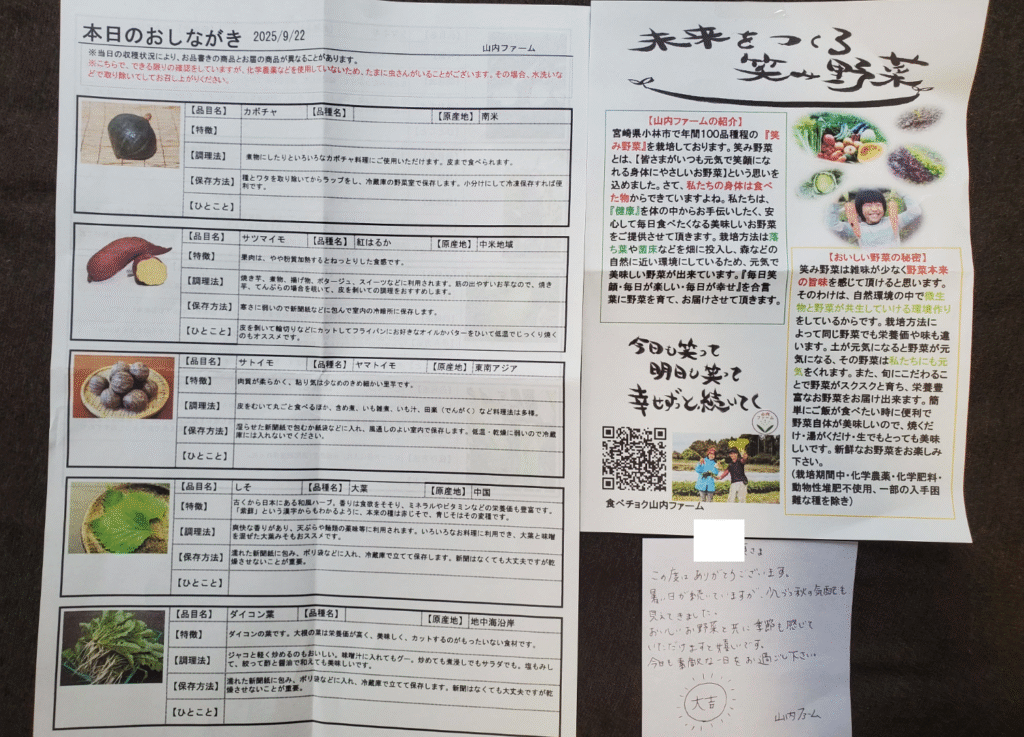 本日のおしながき 2025/9/22
山内ファーム
※当日の収穫状況により、お品書きの商品とお届の商品が異なることがあります。
※こちらで、できる限りの確認をしていますが、化学農薬などを使用していないため、たまに虫さんがいることがございます。その場合、水洗いな
どで取り除いてしてお召し上がりください。
【品目名】 カボチャ 【品種名】 【原産地】 南米
【特徴】
【調理法】 煮物にしたりといろいろなカボチャ料理にご使用いただけます。皮まで食べられます。
【保存方法】 種とワタを取り除いてからラップをし、冷蔵庫の野菜室で保存します。小分けにして冷凍保存すれば便
利です。
【ひとこと】
【品目名】 サツマイモ 【品種名】 紅はるか 【原産地】 中米地域
【特徴】 果肉は、やや粉質加熱するとねっとりした食感です。
【調理法】 焼き芋、煮物、揚げ物、ポタージュ、スイーツなどに利用されます。筋の出やすいお芋なので、焼き
芋、てんぷらの場合を統いて、皮を剝いての調理をおすすめします。
【保存方法】 寒さに弱いので新聞紙などに包んで室内の冷暗所に保存します。
【ひとこと】 皮を剝いて輪切りなどにカットしてフライパンにお好きなオイルかバターをひいて低温でじっくり焼く
のもオススメです。
【品目名】 サトイモ 【品種名】 ヤマトイモ 【原産地】 東南アジア
【特徴】 肉質が柔らかく、粘り気は少なめのきめ細かい里芋です。
【調理法】 皮をむいて丸ごと食べるほか、含め煮、いも雑煮、いも汁、田楽(でんがく)など料理法は多種。
【保存方法】 湿らせた新聞紙で包むか紙袋などに入れ、風通しのよい室内で保存します。低温・乾燥に弱いので冷蔵
庫には入れないでください。
【ひとこと】
【品目名】 しそ 【品種名】 大葉 【原産地】 中国
【特徴】 古くから日本にある和風ハーブ。香りは食欲をそそり、ミネラルやビタミンなどの栄養価も豊富です。
「紫蘇」という漢字からもわかるように、本来の種は赤じそで、青じそはその変種です。
【調理法】 爽快な香りがあり、天ぷらや麺類の薬味等に利用されます。いろいろなお料理に利用でき、大葉と味噌
を混ぜた大葉みそもおススメです。
【保存方法】 濡れた新聞紙に包み、ポリ袋などに入れ、冷蔵庫で立てて保存します。新聞はなくても大丈夫ですが乾
燥させないことが重要。
【ひとこと】
【品目名】 ダイコン葉 【品種名】 【原産地】 地中海沿岸
【特徴】 ダイコンの葉です。大根の葉は栄養価が高く、美味しく、カットするのがもったいない食材です。
【調理法】 ジャコと軽く炒めるのもおいしい。味噌汁に入れてもグー。炒めても煮浸しでもサラダでも。塩もみし
て、絞って酢と醤油で和えても美味しいです。
【保存方法】 濡れた新聞紙に包み、ポリ袋などに入れ、冷蔵庫で立てて保存します。新聞はなくても大丈夫ですが乾
燥させないことが重要。
【ひとこと】
未来をつくる
笑み野菜
【山内ファームの紹介】
宮崎県小林市で年間100品種程の『笑
み野菜』を栽培しております。笑み野菜
とは、【皆さまがいつも元気で笑顔にな
れる身体にやさしいお野菜】という思いを
込めました。さて、私たちの身体は食べ
た物からできていますよね。私たちは、
『健康』を体の中からお手伝いしたく、安
心して毎日食べたくなる美味しいお野菜
をご提供させて頂きます。栽培方法は落
ち葉や菌床などを畑に投入し、森などの
自然に近い環境にしているため、元気で
美味しい野菜が出来ています。『毎日笑
顔・毎日が楽しい・毎日が幸せ』を合言
葉に野菜を育て、お届けさせて頂きます。
今日も笑って
明日も笑って
幸せずっと続いてく
食べチョク山内ファーム
【おいしい野菜の秘密】
笑み野菜は雑味が少なく野菜本来
の旨味を感じて頂けると思います。
そのわけは、自然環境の中で微生
物と野菜が共生していける環境作り
をしているからです。栽培方法に
よって同じ野菜でも栄養価や味も違
います。土が元気になると野菜が元
気になる、その野菜は私たちにも元
気をくれます。また、旬にこだわるこ
とで野菜がスクスクと育ち、栄養豊
富なお野菜をお届け出来ます。簡
単にご飯が食べたい時に便利で
野菜自体が美味しいので、焼くだ
け・湯がくだけ・生でもとっても美味
しいです。新鮮なお野菜をお楽しみ
下さい。
(栽培期間中・化学農薬・化学肥料・
動物性堆肥不使用、一部の入手困
難な種を除き)
さま
この度はありがとうございます。
暑い日が続いていますが、少しづつ秋の気配も
見えてきました。
おいしいお野菜と共に季節も感じて
いただけますと嬉しいです。
今日も素敵な一日をお過ごし下さい。
大吉
山内ファーム